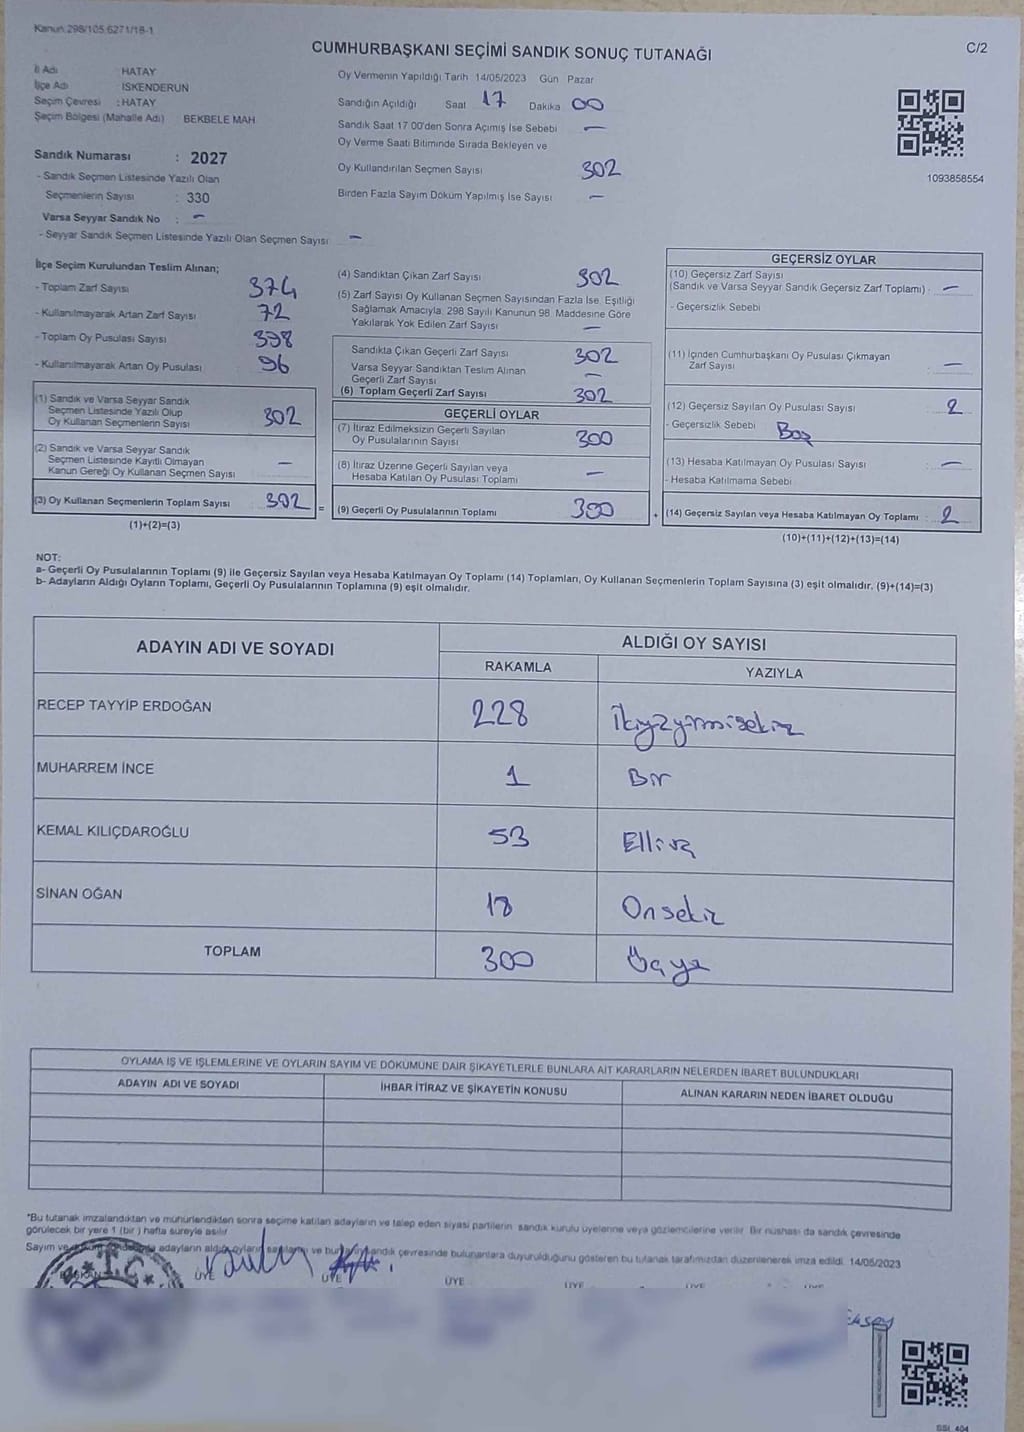 Kanun:298/105,6271/18-1
C/2
CUMHURBAŞKANI SEÇİMİ SANDIK SONUÇ TUTANAĞI
İl Adı : HATAY
İlçe Adı : İSKENDERUN
Seçim Çevresi : HATAY
Seçim Bölgesi (Mahalle Adı) BEKBELE MAH
Sandık Numarası : 2027
- Sandık Seçmen Listesinde Yazılı Olan
Seçmenlerin Sayısı : 330
Varsa Seyyar Sandık No : –
- Seyyar Sandık Seçmen Listesinde Yazılı Olan Seçmen Sayısı –
Oy Vermenin Yapıldığı Tarih 14/05/2023 Gün Pazar
Sandığın Açıldığı Saat 17 Dakika 00
Sandık Saat 17:00'den Sonra Açımış İse Sebebi –
Oy Verme Saati Bitiminde Sırada Bekleyen ve
Oy Kullandırılan Seçmen Sayısı 302
Birden Fazla Sayım Döküm Yapılmış İse Sayısı –
1093858554
İlçe Seçim Kurulundan Teslim Alınan;
- Toplam Zarf Sayısı 374
- Kullanılmayarak Artan Zarf Sayısı 72
- Toplam Oy Pusulası Sayısı 398
- Kullanılmayarak Artan Oy Pusulası 96
(1) Sandık ve Varsa Seyyar Sandık
Seçmen Listesinde Yazılı Olup
Oy Kullanan Seçmenlerin Sayısı 302
(2) Sandık ve Varsa Seyyar Sandık
Seçmen Listesinde Kayıtlı Olmayan
Kanun Gereği Oy Kullanan Seçmen Sayısı –
(3) Oy Kullanan Seçmenlerin Toplam Sayısı 302 =
(1)+(2)=(3)
(4) Sandıktan Çıkan Zarf Sayısı 302
(5) Zarf Sayısı Oy Kullanan Seçmen Sayısından Fazla İse, Eşitliği
Sağlamak Amacıyla, 298 Sayılı Kanunun 98. Maddesine Göre
Yakılarak Yok Edilen Zarf Sayısı –
Sandıkta Çıkan Geçerli Zarf Sayısı 302
Varsa Seyyar Sandıktan Teslim Alınan
Geçerli Zarf Sayısı –
(6) Toplam Geçerli Zarf Sayısı 302
GEÇERLİ OYLAR
(7) İtiraz Edilmeksizin Geçerli Sayılan
Oy Pusulalarının Sayısı 300
(8) İtiraz Üzerine Geçerli Sayılan veya
Hesaba Katılan Oy Pusulası Toplamı –
(9) Geçerli Oy Pusulalarının Toplamı 300 +
GEÇERSİZ OYLAR
(10) Geçersiz Zarf Sayısı
(Sandık ve Varsa Seyyar Sandık Geçersiz Zarf Toplamı) : –
- Geçersizlik Sebebi
(11) İçinden Cumhurbaşkanı Oy Pusulası Çıkmayan
Zarf Sayısı –
(12) Geçersiz Sayılan Oy Pusulası Sayısı 2
- Geçersizlik Sebebi Boş
(13) Hesaba Katılmayan Oy Pusulası Sayısı –
- Hesaba Katılmama Sebebi
(14) Geçersiz Sayılan veya Hesaba Katılmayan Oy Toplamı : 2
(10)+(11)+(12)+(13)=(14)
NOT:
a- Geçerli Oy Pusulalarının Toplamı (9) ile Geçersiz Sayılan veya Hesaba Katılmayan Oy Toplamı (14) Toplamları, Oy Kullanan Seçmenlerin Toplam Sayısına (3) eşit olmalıdır. (9)+(14)=(3)
b- Adayların Aldığı Oyların Toplamı, Geçerli Oy Pusulalarının Toplamına (9) eşit olmalıdır.
ADAYIN ADI VE SOYADI
ALDIĞI OY SAYISI
RAKAMLA YAZIYLA
RECEP TAYYİP ERDOĞAN 228 İkiyüzyirmisekiz
MUHARREM İNCE 1 Bir
KEMAL KILIÇDAROĞLU 53 Elliüç
SİNAN OĞAN 18 Onsekiz
TOPLAM 300 Üçyüz
OYLAMA İŞ VE İŞLEMLERİNE VE OYLARIN SAYIM VE DÖKÜMÜNE DAİR ŞİKAYETLERLE BUNLARA AİT KARARLARIN NELERDEN İBARET BULUNDUKLARI
ADAYIN ADI VE SOYADI İHBAR İTİRAZ VE ŞİKAYETİN KONUSU ALINAN KARARIN NEDEN İBARET OLDUĞU
*Bu tutanak imzalandıktan ve mühürlendikten sonra seçime katılan adayların ve talep eden siyasi partilerin sandık kurulu üyelerine veya gözlemcilerine verilir. Bir nushası da sandık çevresinde
görülecek bir yere 1 (bir ) hafta süreyle asılır
Sayım ve adayların aldığı oyların ve sandık çevresinde bulunanlara duyurulduğunu gösteren bu tutanak tarafımızdan düzenlenerek imza edildi. 14/05/2023
T.C.
ÜYE ÜYE ÜYE ÜYE ÜYE ÜYE
SSI_404